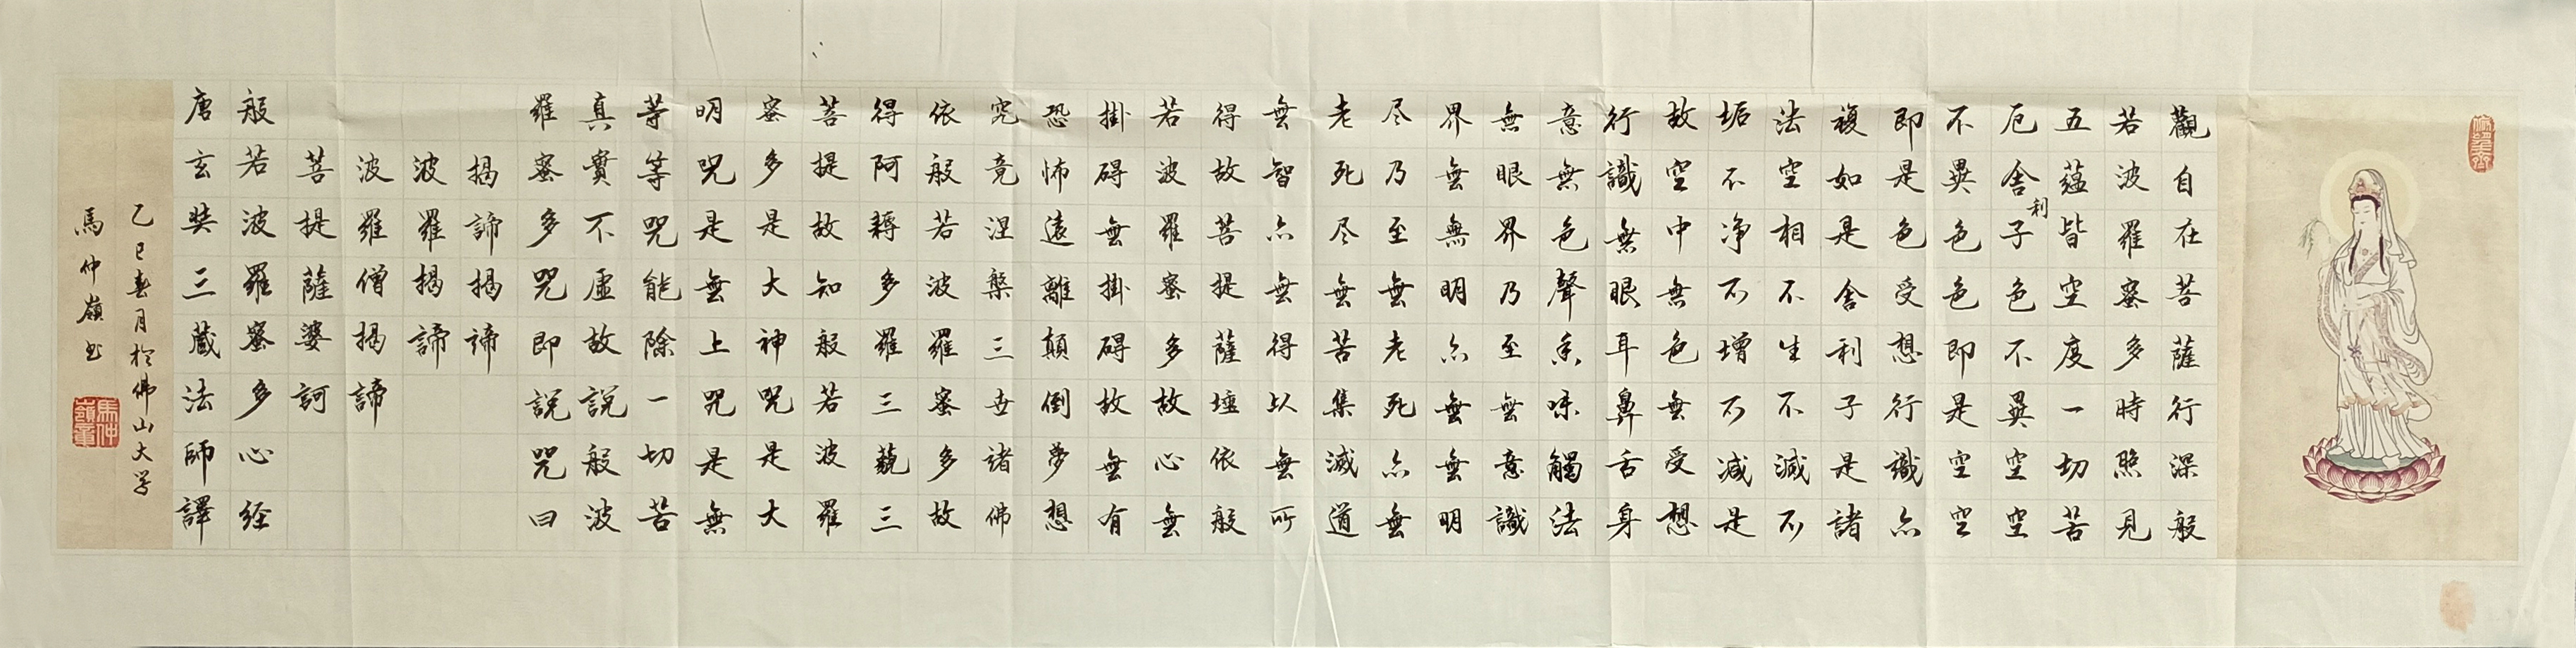 觀自在菩薩行深般
若波羅蜜多時照見
五蘊皆空度一切苦
厄舍利子色不異空空
不異色色即是空空
即是色受想行識亦
複如是舍利子是諸
法空相不生不滅不
垢不净不增不減是
故空中無色無受想
行識無眼耳鼻舌身
意無色聲香味觸法
無眼界乃至無意識
界無無明亦無無明
尽乃至無老死亦無
老死尽無苦集滅道
無智亦無得以無所
得故菩提薩埵依般
若波羅蜜多故心無
掛碍無掛碍故無有
恐怖遠離顛倒夢想
究竟涅槃三世諸佛
依般若波羅蜜多故
得阿耨多羅三藐三
菩提故知般若波羅
蜜多是大神咒是大
明咒是無上咒是無
等等咒能除一切苦
真實不虛故說般波
羅蜜多咒即說咒曰
揭諦揭諦
波羅揭諦
波羅僧揭諦
菩提薩婆訶
般若波羅蜜多心经
唐玄奘三藏法師譯
乙巳春月於佛山大学
馬仲嶺书